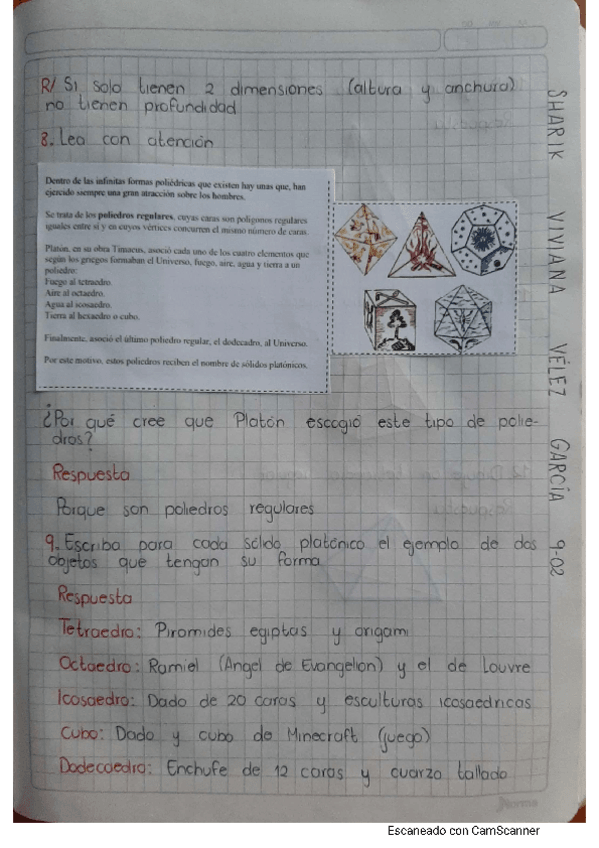 R/ Si solo tienen 2 dimensiones (altura y anchura)
no tienen profundidad
8. Lea con atención
Dentro de las infinitas formas poliédricas que existen hay unas que, han
ejercido siempre una gran atracción sobre los hombres.
Se trata de los poliedros regulares, cuyas caras son polígonos regulares
iguales entre sí y en cuyos vértices concurren el mismo número de caras.
Platón, en su obra Timaeus, asoció cada uno de los cuatro elementos que
según los griegos formaban el Universo, fuego, aire, agua y tierra a un
poliedro:
Fuego al tetraedro.
Aire al octaedro.
Agua al icosaedro.
Tierra al hexaedro o cubo.
Finalmente, asoció el último poliedro regular, el dodecadro, al Universo.
Por este motivo, estos poliedros reciben el nombre de sólidos platónicos.
¿Por qué cree que Platón escogió este tipo de polie-
dros?
Respuesta
Porque son poliedros regulares
9. Escriba para cada sólido platónico el ejemplo de dos
objetos que tengan su forma
Respuesta
Tetraedro: Piromides egiptas y origami
Octaedro: Ramiel (Angel de Evangelion) y el de Louvre
Icosaedro: Dado de 20 caras y esculturas icosaedricas
Cubo: Dado y cubo de Minecraft (juego)
Dodecaedro: Enchufe de 12 caras y cuarzo tallado
SHARIK VIVIANA VÉLEZ GARCÍA 9-02
Norma
Escaneado con CamScanner